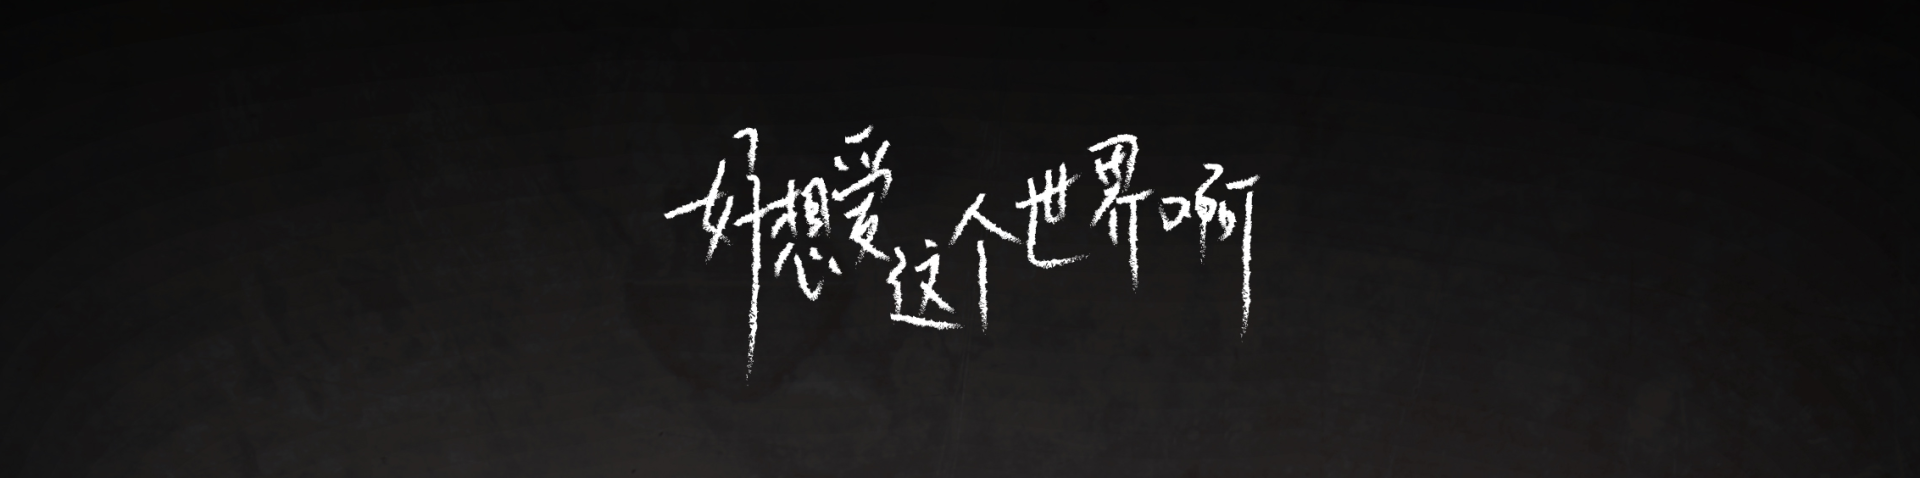 好想爱这个世界啊